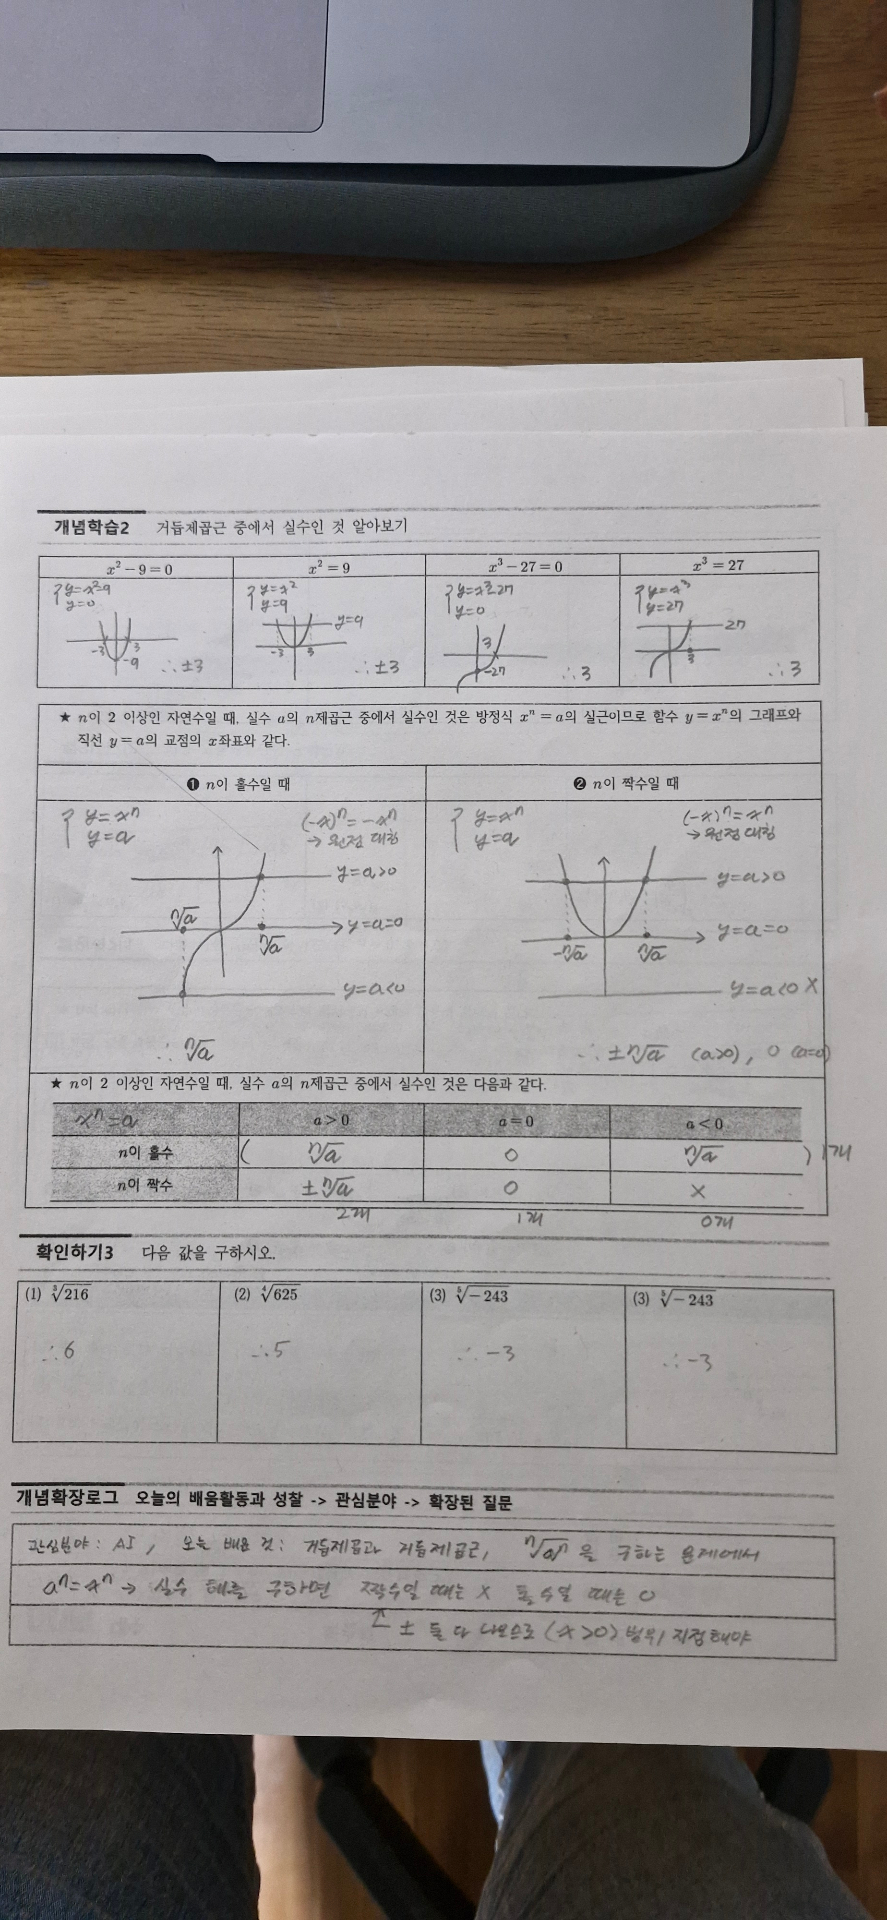 개념학습2 거듭제곱근 중에서 실수인 것 알아보기
x² − 9 = 0 x² = 9 x³ − 27 = 0 x³ = 27
{ y=x²-9 { y=x² { y=x³-27 { y=x³
y=0 y=9 y=0 y=27
y=9 27
-3 3 -3 3 3 3
-9 ∴ ±3 ∴ ±3 -27 ∴ 3 ∴ 3
★ n이 2 이상인 자연수일 때, 실수 a의 n제곱근 중에서 실수인 것은 방정식 xⁿ = a의 실근이므로 함수 y = xⁿ의 그래프와
직선 y = a의 교점의 x좌표와 같다.
❶ n이 홀수일 때 ❷ n이 짝수일 때
{ y=xⁿ (-x)ⁿ=-xⁿ
y=a → 원점 대칭
y=a>0
ⁿ√a y=a=0
ⁿ√a
y=a<0
∴ ⁿ√a
{ y=xⁿ (-x)ⁿ=xⁿ
y=a → 원점 대칭
y=a>0
y=a=0
-ⁿ√a ⁿ√a
y=a<0 X
∴ ±ⁿ√a (a>0), 0 (a=0)
★ n이 2 이상인 자연수일 때, 실수 a의 n제곱근 중에서 실수인 것은 다음과 같다.
xⁿ=a a > 0 a = 0 a < 0
n이 홀수 ( ⁿ√a 0 ⁿ√a ) 1개
n이 짝수 ±ⁿ√a 0 X
2개 1개 0개
확인하기3 다음 값을 구하시오.
(1) ³√216 (2) ⁴√625 (3) ⁵√−243 (3) ⁵√−243
∴ 6 ∴ 5 ∴ -3 ∴ -3
개념확장로그 오늘의 배움활동과 성찰 -> 관심분야 -> 확장된 질문
관심분야: AI, 오늘 배운 것: 거듭제곱과 거듭제곱근, ⁿ√aⁿ 을 구하는 문제에서
aⁿ=xⁿ → 실수 해를 구하면 짝수일 때는 X 홀수일 때는 0
↑ ± 둘 다 나오므로 (x>0) 범위 지정해야